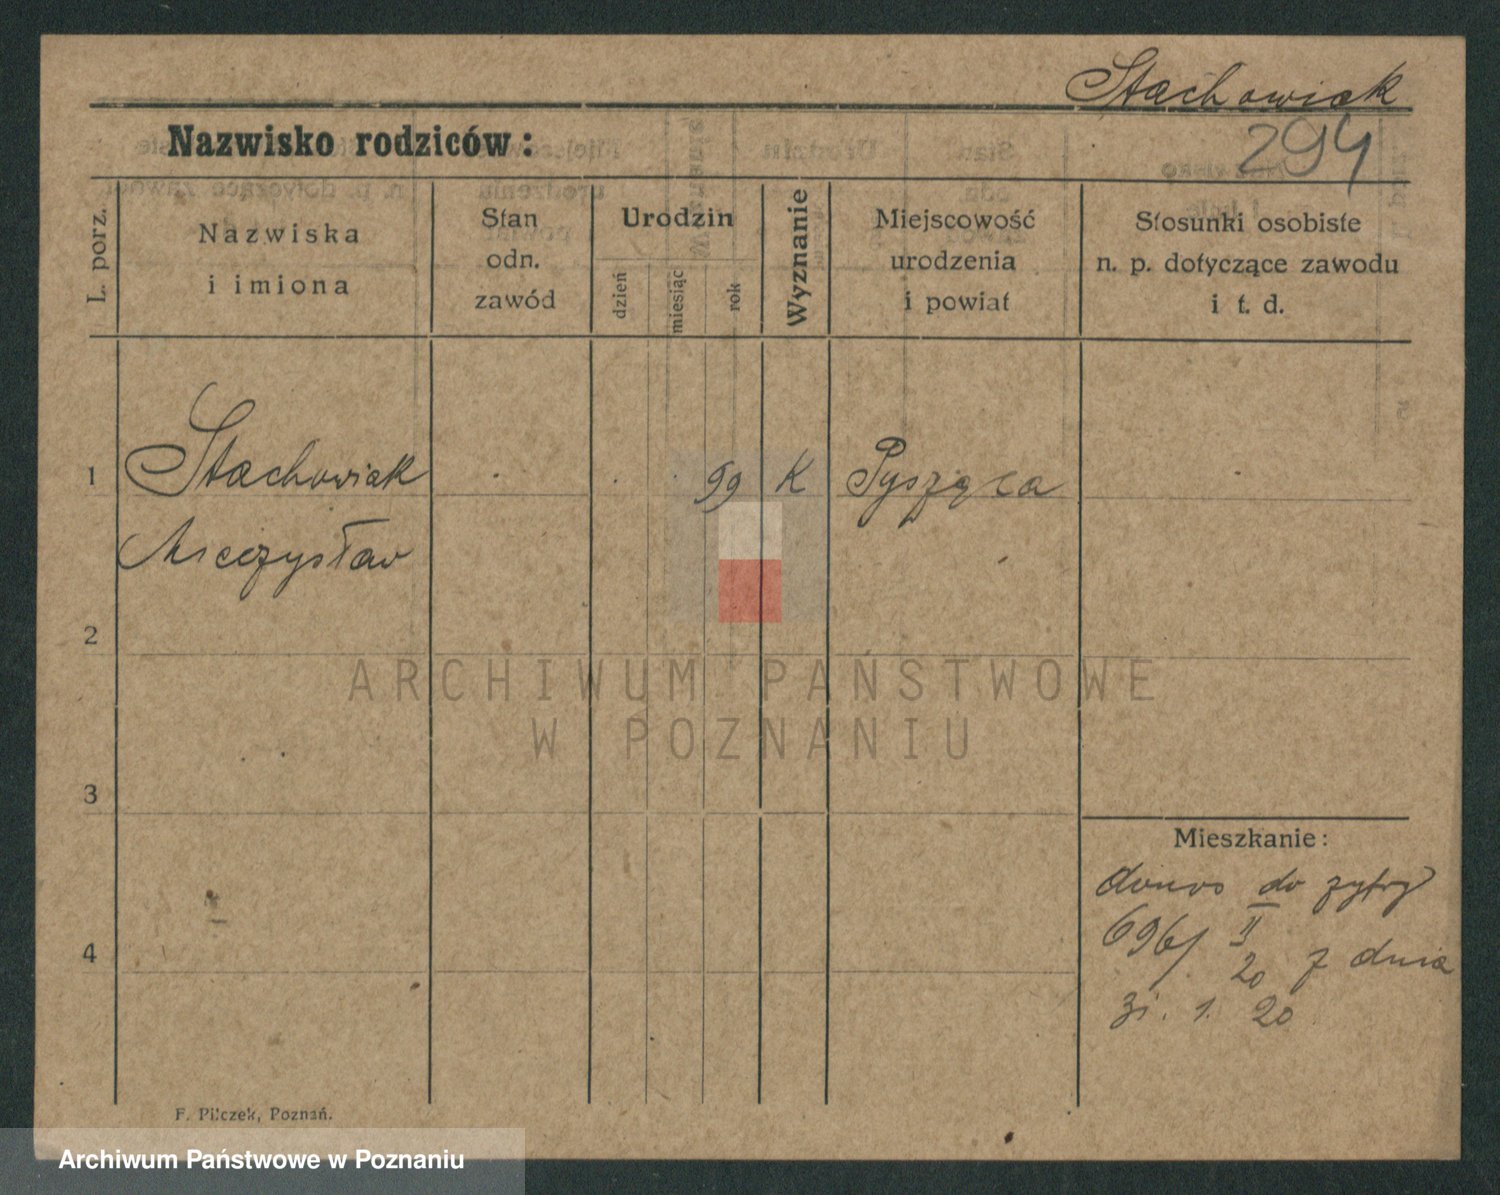 Stachowiak
294
Nazwisko rodziców:
L. porz.
Nazwiska
i imiona
Stan
odn.
zawód
Urodzin
dzień
miesiąc
rok
Wyznanie
Miejscowość
urodzenia
i powiat
Stosunki osobiste
n. p. dotyczące zawodu
i t. d.
1 Stachowiak 99 K Pysząca
Mieczysław
2
ARCHIWUM PAŃSTWOWE
W POZNANIU
3
Mieszkanie:
do
696/ II
20 z dnia
31. 1. 20
4
F. Pilczek, Poznań.
Archiwum Państwowe w Poznaniu